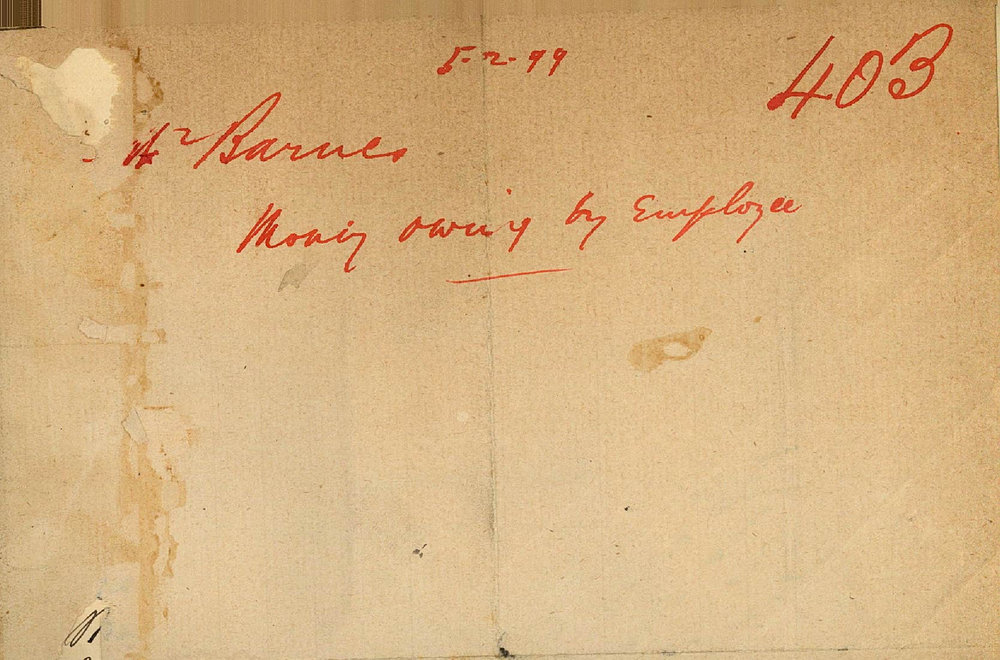 5-2-99
403
Mr Barnes
Money owing by Employee